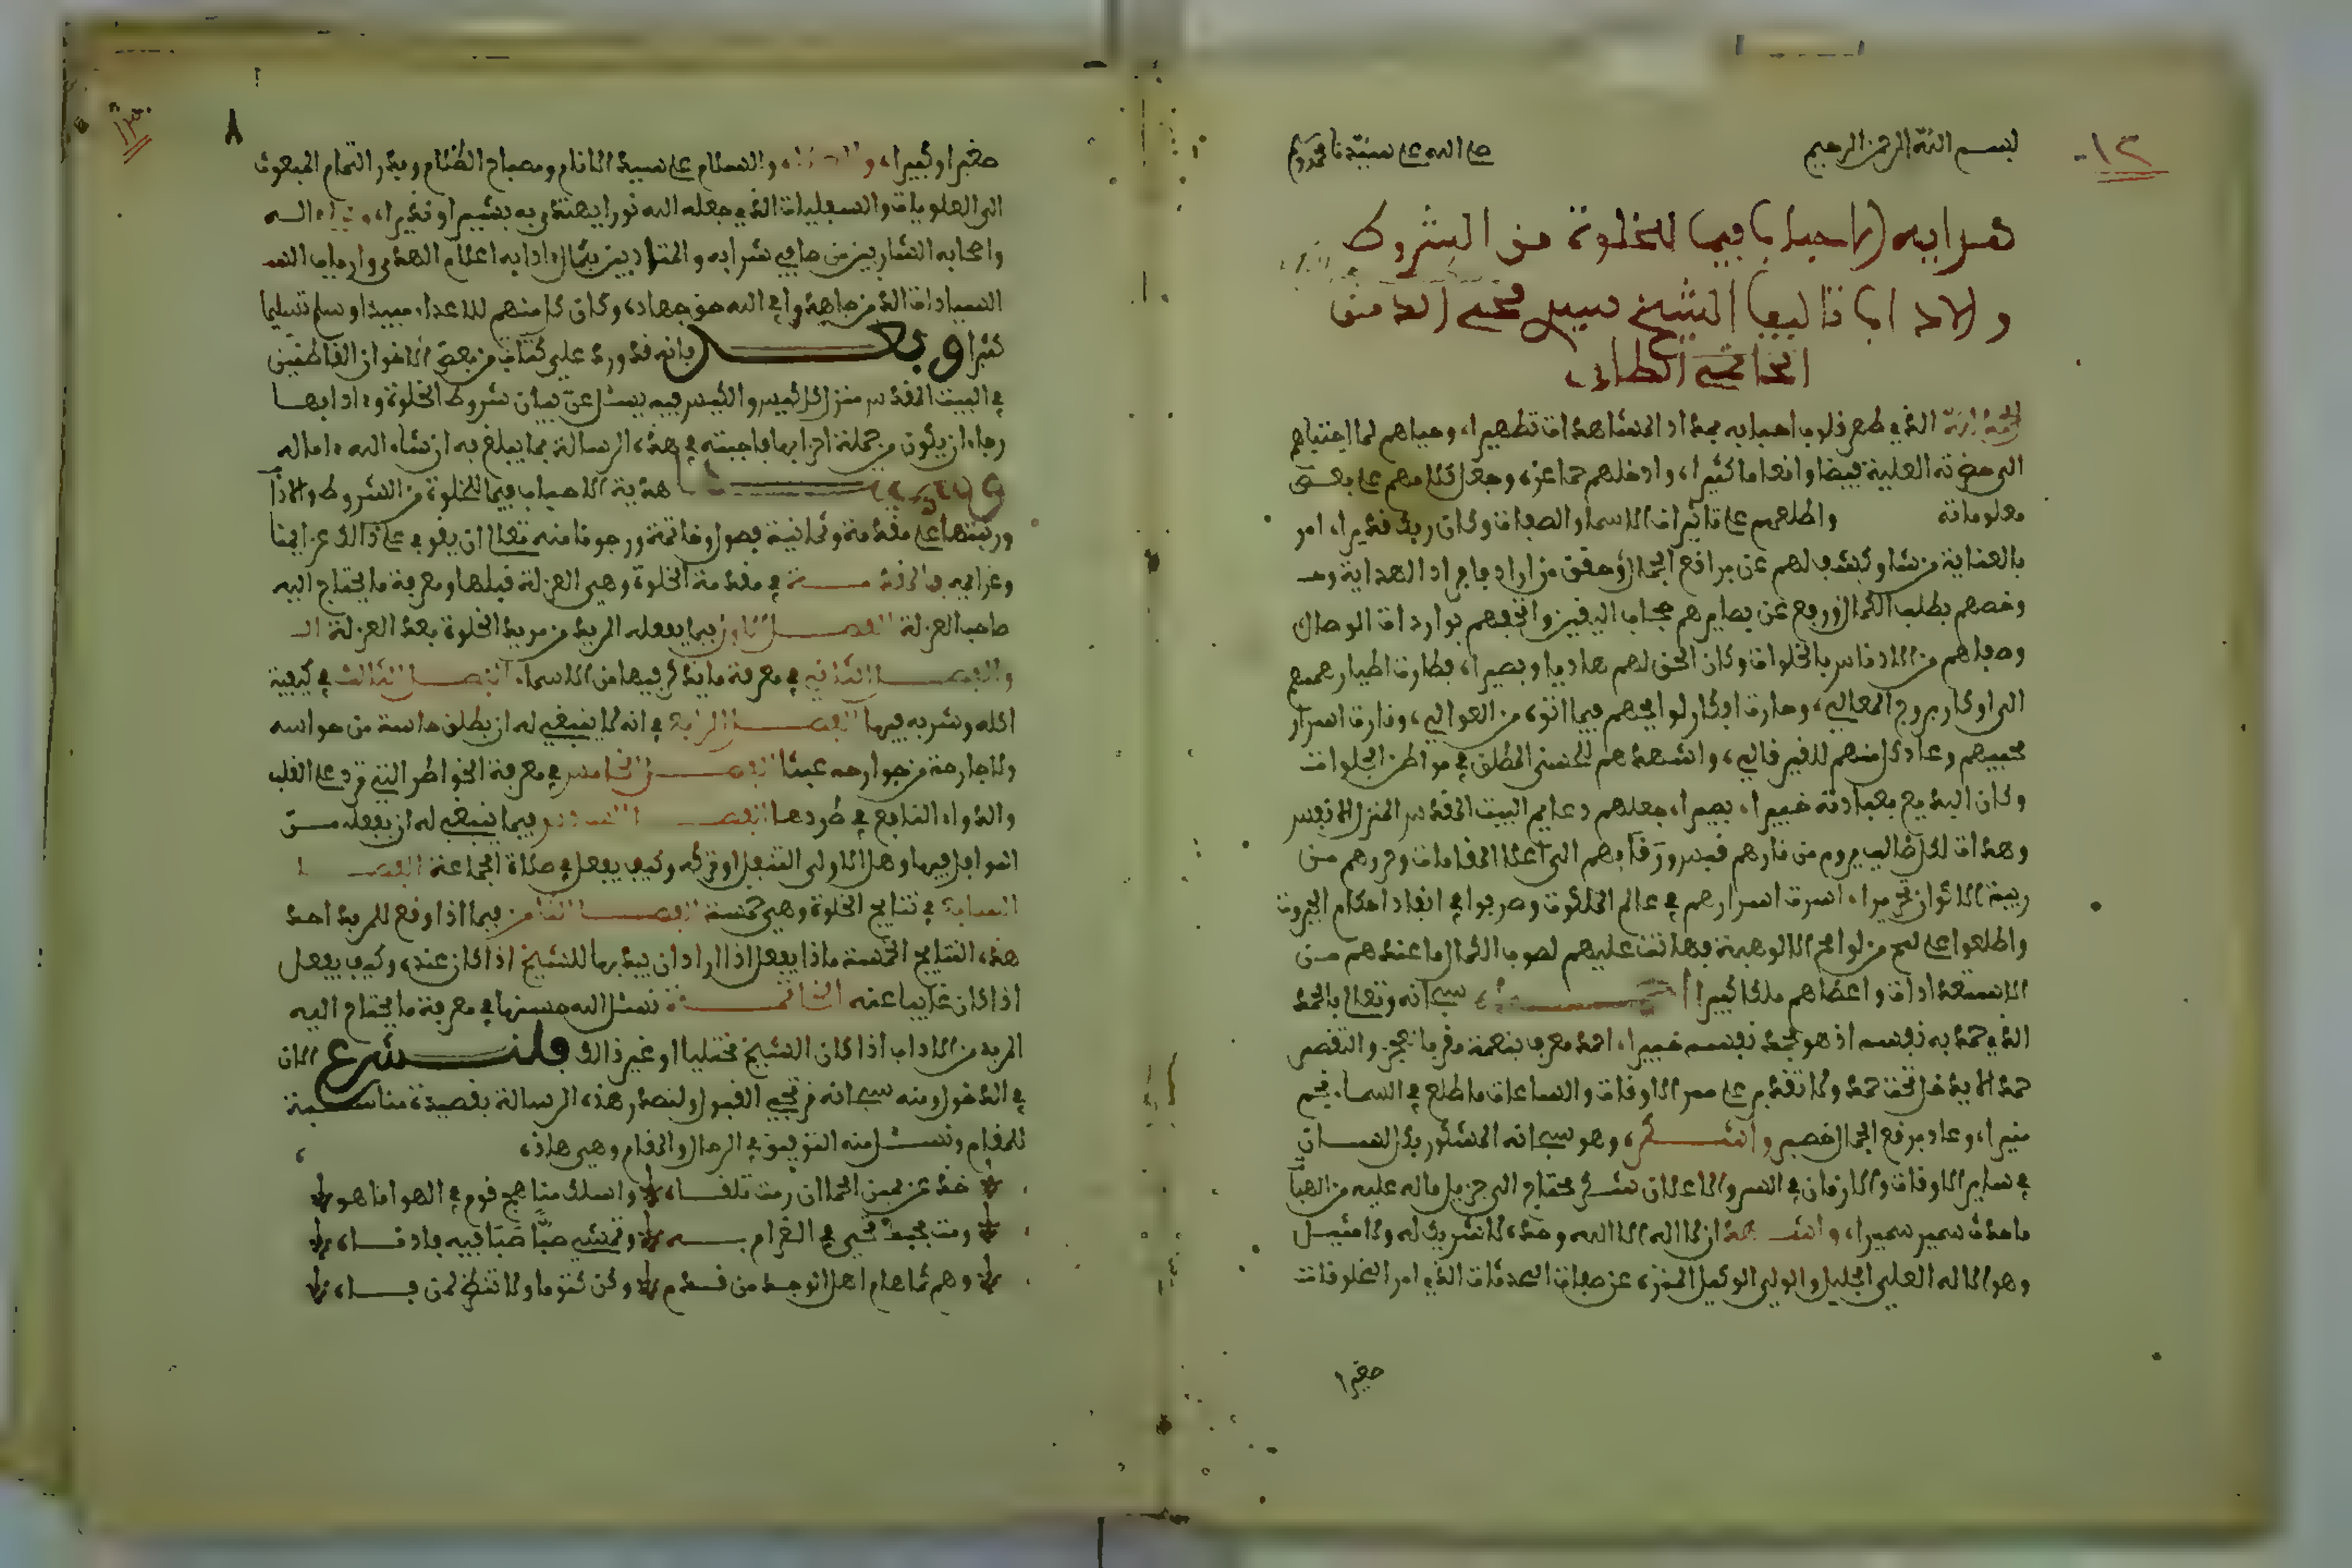 بسم الله الرحمن الرحيم صلى الله على سيدنا محمد وسلم
١٣٠
هدية الاحباب فيما للخلوة من الشروط
والاداب تاليف الشيخ سيدي محيي الدين
الحاتمي الطائي
الحمد لله الذي طهر قلوب احبابه بمداد المشاهدات تطهيرا، وحباهم لما اجتباهم
الى حضرته العلية فيضا وانعاما كثيرا، وادخلهم حما عزه وجعل كلامهم على بعض
معلوماته واطلعهم على تاثيرات الاسما والصفات وكان ربك قديرا، امر
بالعناية من شا وكشف لهم عن براقع الجمال وحقق من اراد
وخصهم بطلب الكمال ورفع عن بصايرهم حجاب اليقين واتحفهم بواردات الوصال
وصفاهم من الادناس بالخلوات وكان الحق لهم هاديا وبصيرا، فطارت اطيار هممهم
الى اوكار بروج المعالي، وحارت افكار لوايحهم فيما اتوه من العوالي، وفارت اسرار
محبيهم وعاد كل منهم للغير قالي، واشهدهم الحسن المطلق في مواطن الجلوات
وكان البديع بعبادته خبيرا، بصيرا، جعلهم دعايم البيت المقدس المنزل الانفس
وهداة لكل طالب يروم من نارهم قبس ورقا بهم الى اعلا المقامات وحررهم من
ربقة الاكوان تحريرا، اسرت اسرارهم في عالم الملكوت وصرفوا في انفاد احكام الجبروت
واطلعوا على لمح من لوامح الالوهية فهانت عليهم لصوب الكمال ما عندهم من
الاستعدادات واعطاهم ملكا كبيرا احمده سبحانه وتعالى بالحمد
الذي حمد به نفسه اذ هو بحمد نفسه خبيرا، احمد معرف بنعمة مقر بالعجز والتقصر
حمدا لا يدخل تحت حمد ولا تقدم على ممر الاوقات والساعات ما طلع في السما، نجم
منيرا، وعاد برقع الجمال قصير واشكره، وهو سبحانه المشكور بكل لسان
في ساير الاوقات والازمان في السر والاعلان شكر محتاج الى جزيل ماله عليه من الهبات
ما حدث سمير سميرا، واشهد ان لا اله الا الله وحده لا شريك له ولا مثيل
وهو الاله العلي الجليل والولي الوكيل المنزه عن صفات المحدثات الذي امر المخلوقات
حقيرا
٨
١٣٠
صغيرا وكبيرا، والصلاة، والسلام على سيد الانام ومصباح الظلام وبدر التمام المبعوث
الى العلويات والسفليات الذي جعله الله نورا يهتدى به بشيرا ونذيرا، وعلى اله
واصحابه الشاربين من صافي شرابه والمتادبين بكمال ادابه اعلام الهدى وارباب الندا
السادات الذين جاهدوا في الله حق جهاده وكان كل منهم للاعداء مبيدا وسلم تسليما
كثيرا وبعد فانه قد ورد علي كتاب من بعض الاخوان القاطنين
في البيت المقدس منزل الكيس والكيس فيه يسئل عن بيان شروط الخلوة وادابها
رجاء ان يكون من جملة احزابها فاجبته في هذه الرسالة بما يبلغ به ان شاء الله اماله
وسميتها هدية الاحباب فيما للخلوة من الشروط والاداب
ورتبتها على مقدمة وثمانية فصول وخاتمة ورجونا منه تعالى ان يقوي على ذالك عزايمنا
وعزايمه فالمقدمة في مقدمة الخلوة وهي العزلة قبلها ومعرفة ما يحتاج اليه
صاحب العزلة الفصل الاول فيما يفعله المريد من مريد الخلوة بعد العزلة
والفصل الثاني في معرفة ما يذكر فيها من الاسماء الفصل الثالث في كيفية
اكله وشربه فيها الفصل الرابع في انه لا ينبغي له ان يطلق حاسة من حواسه
ولا جارحة من جوارحه عبثا الفصل الخامس في معرفة الخواطر التي ترد على القلب
والدواء النافع في طردها الفصل السادس فيما ينبغي له ان يفعله من
النوافل فيها وهل الاولى التنفل او تركه وكيف يفعل في صلاة الجماعة الفصل
السابع في نتايج الخلوة وهي خمسة الفصل الثامن فيما اذا وقع للمريد احد
هذه النتايج الخمسة ماذا يفعل اذا اراد ان يبديها للشيخ اذا كان عنده وكيف يفعل
اذا كان غايبا عنه الخاتمة نسئل الله حسنها في معرفة ما يحتاج اليه
المريد من الاداب اذا كان الشيخ مختليا او غير ذالك فلنشرع الان
في الدخول ومنه سبحانه نرتجي القبول ولنصدر هذه الرسالة بقصيدة مناسبة
للمقام ونسئل منه التوفيق في الرحال والمقام وهي هاذه
خذ عن يمين الحما ان رمت تلقاه واسلك مناهج قوم في الهوا تاهو
ومت بحبك تحيى في الغرام به وتمشي صبا صبا فيه
وهم كما هام اهل الوجد من قدم وكن كتوما ولا تنظر لمن